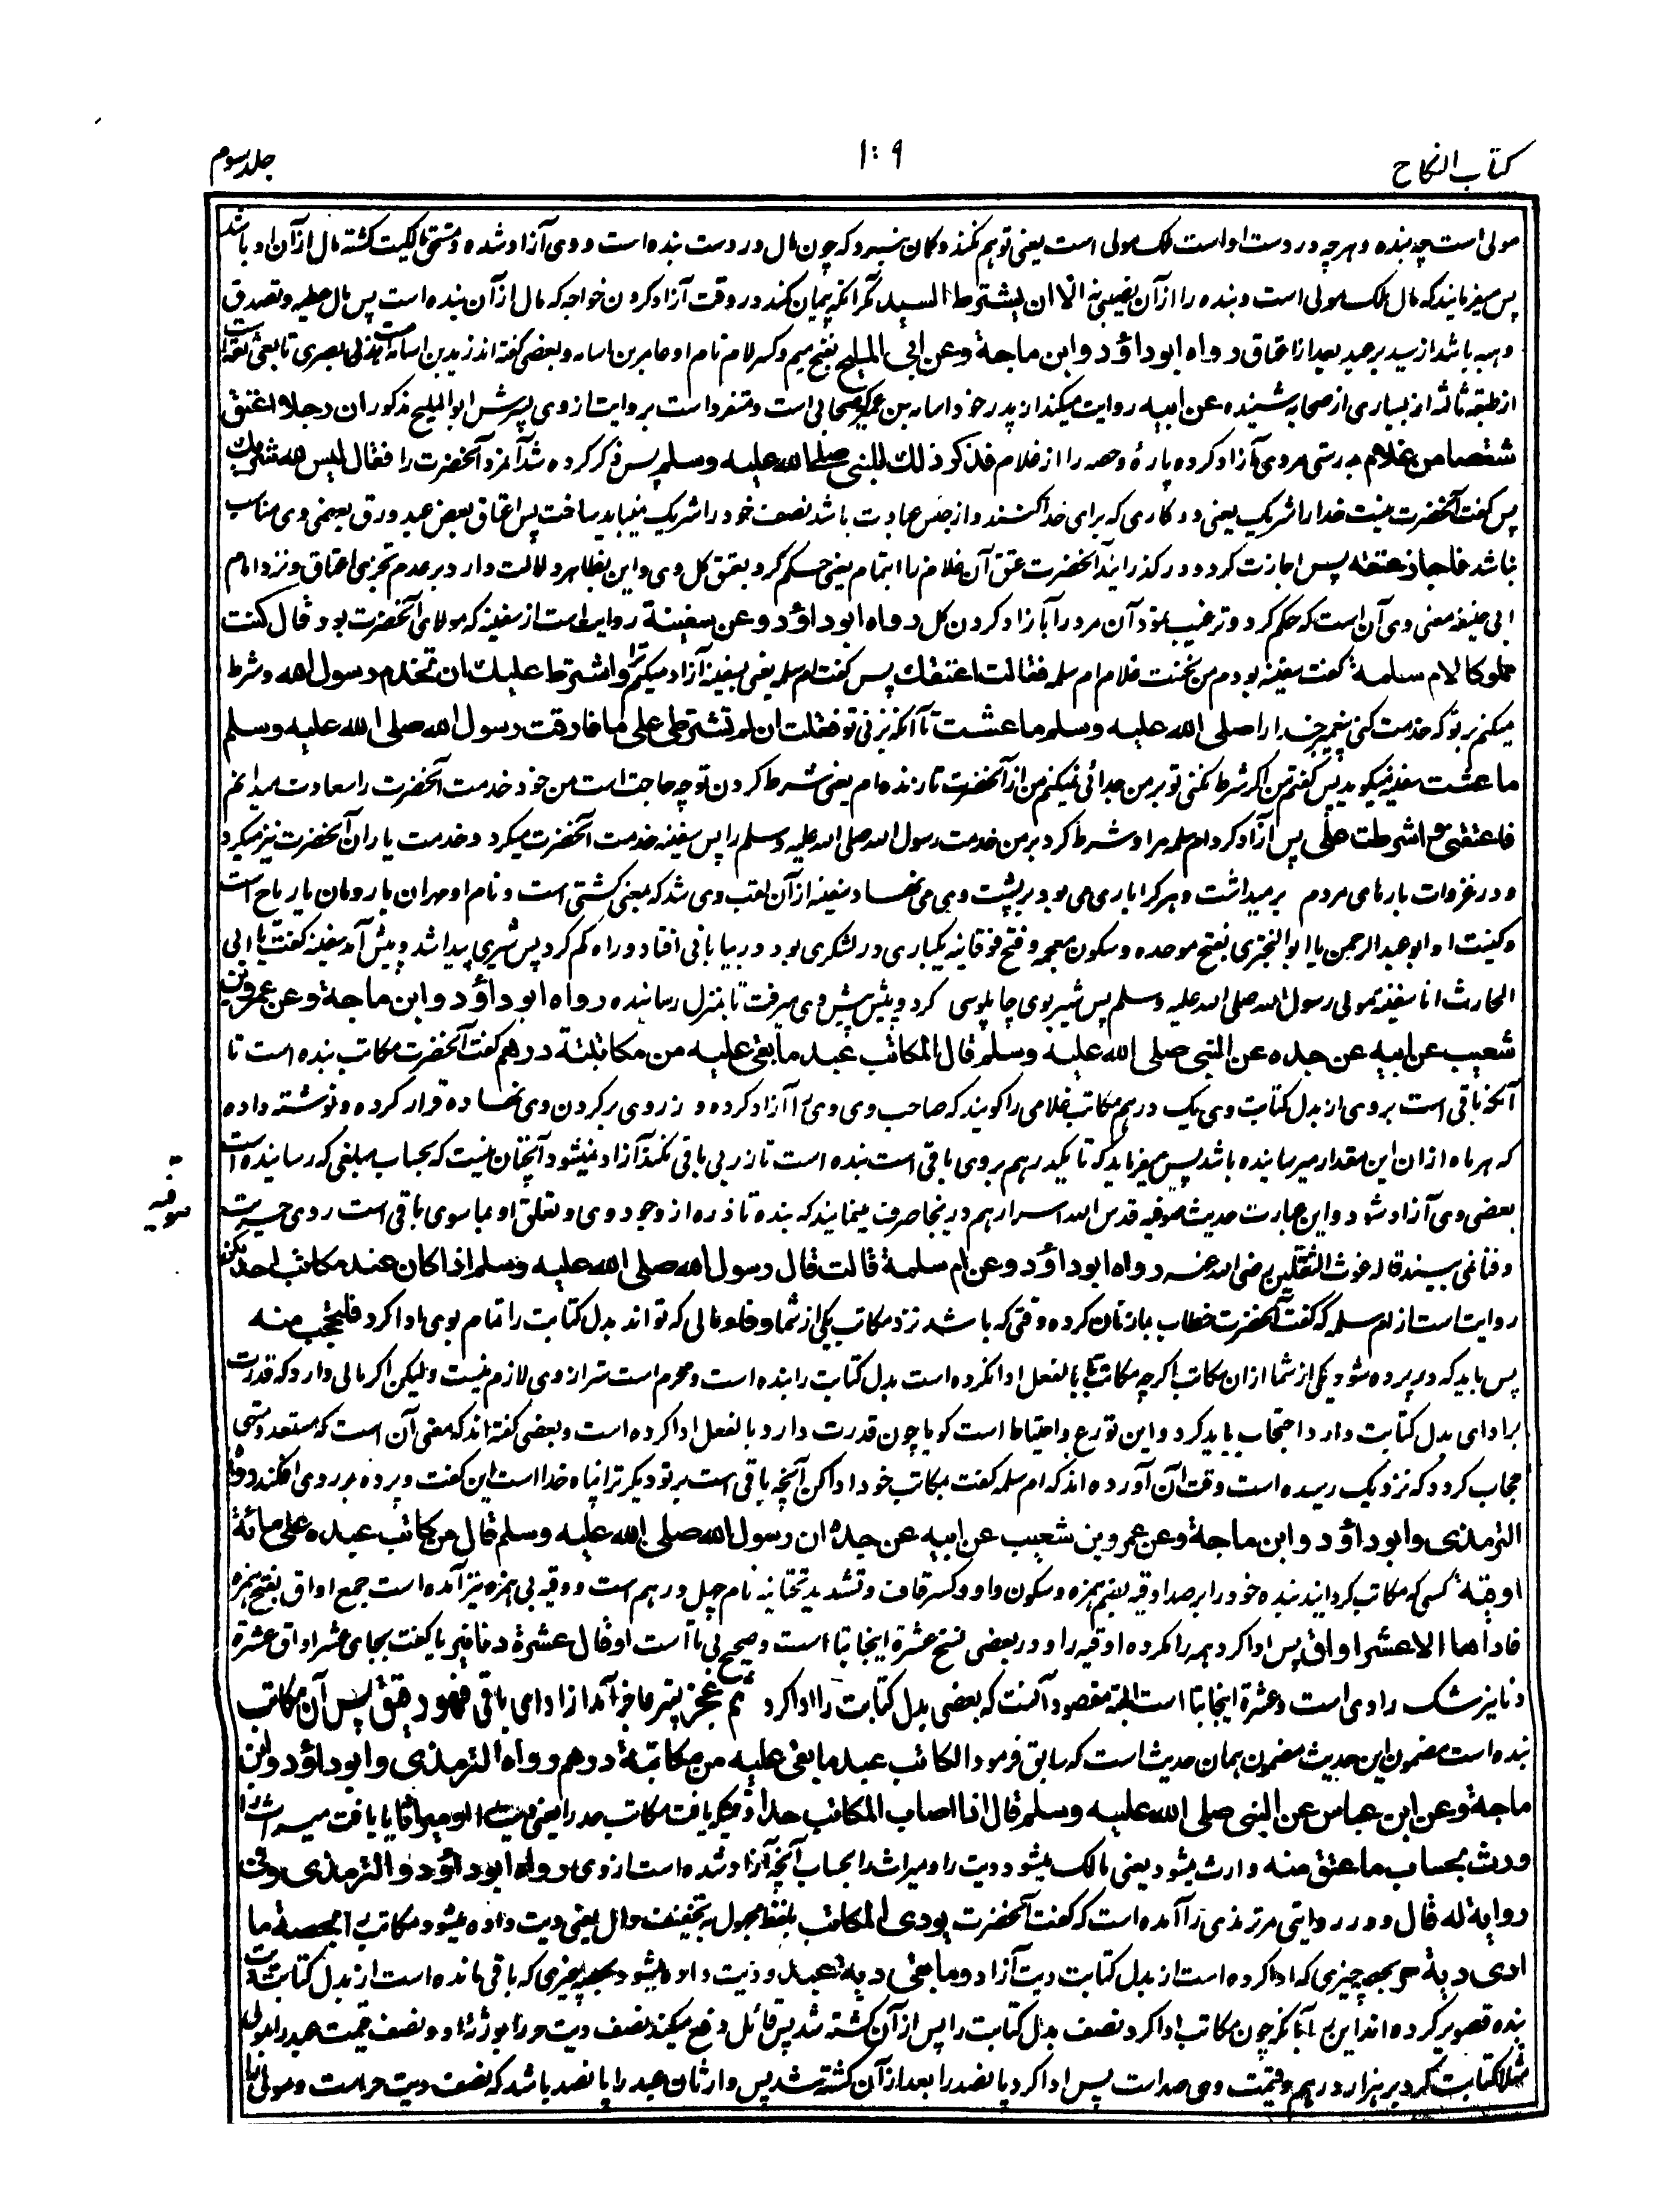 کتاب النکاح
۱۰۹
جلد سوم
مولی است چه بنده و هرچه در دست او است ملک مولی است یعنی توهم نکند و گمان نبرد که چون مال در دست بنده است و وی آزاد شده و مستحق مالکیت گشته مال از آن او باشد
پس میفرمایند که مال ملک مولی است و بنده را از آن نصیبی نه الا ان یشترط السید مگر آنکه پیمان کند در وقت آزاد کردن خواجه که مال از آن بنده است پس مال عطیه و تصدق
و هبه باشد از سید بر عبد بعد از اعتاق رواه ابوداؤد وابن ماجة وعن ابی الملیح بفتح میم و کسر لام نام او عامر بن اسامه و بعضی گفته اند زید بن اسامه هذلی بصری تابعی ثقه است
از طبقه ثالثه از بسیاری از صحابه شنیده عن ابیه روایت میکند از پدر خود اسامه بن عمیر صحابی است و متفرد است بروایت از وی پسرش ابو الملیح مذکور ان رجلا اعتق
شقصا من غلام بدرستی مردی آزاد کرده پارهٔ و حصه را از غلام فذکر ذلك للنبی صلی الله علیه وسلم پس ذکر کرده شد آن مزد آنحضرت را فقال لیس لله شریك
پس گفت آنحضرت نیست خدا را شریک یعنی در کاری که برای خدا کنند و از جنس عبادت باشد نصف خود را شریک نمیباید ساخت پس اعتاق بعض عبد ورق بعضی وی مناسب
نباشد فاجاز عتقه پس اجازت کرد و در گذرانید آنحضرت عتق آن غلام را بتمام یعنی حکم کرد بعتق کل وی و این بظاهر دلالت دارد بر عدم تجزی اعتاق و نزد امام
ابی حنیفه معنی وی آن است که حکم کرد و ترغیب نمود آن مرد را بآزاد کردن کل رواه ابوداؤد وعن سفینة روایت است از سفینه که مولای آنحضرت بود قال کنت
مملوکا لام سلمة گفت سفینه بودم من نخست غلام ام سلمه فقالت اعتقك پس گفت ام سلمه یعنی سفینه آزاد میکنم ترا واشترط علیك ان تخدم رسول الله و شرط
میکنم بر تو که خدمت کنی پیغمبر خدا را صلی الله علیه وسلم ما عشت تا آنکه بزئی تو فقلت ان لم تشترطی علی ما فارقت رسول الله صلی الله علیه وسلم
ما عشت سفینه میگوید پس گفتم من اگر شرط نکنی تو بر من جدائی نمیکنم من از آنحضرت تا زنده ام یعنی شرط کردن تو چه حاجت است من خود خدمت آنحضرت را سعادت میدانم
فاعتقتنی واشرطت علی پس آزاد کرد ام سلمه مرا و شرط کرد بر من خدمت رسول الله صلی الله علیه وسلم را پس سفینه خدمت آنحضرت میکرد و خدمت یاران آنحضرت نیز میکرد
و در غزوات بارهای مردم بر میداشت و هر کرا باری می بود بر پشت وی می نهاد سفینه از آن لقب وی شد که بمعنی کشتی است و نام او مهران یا رومان یا رباح است
و کنیت او ابو عبد الرحمن یا ابو البختری بفتح موحده و سکون معجمه و فتح فوقانیه یکباری در لشکری بود در بیابانی افتاد و راه گم کرد پس شیری پیدا شد و پیش آمد سفینه گفت یا ابی
الحارث انا سفینة مولی رسول الله صلی الله علیه وسلم پس شیر بوی چاپلوسی کرد و پیش پیش وی میرفت تا بمنزل رسانیده رواه ابوداؤد وابن ماجة وعن عمرو بن
شعیب عن ابیه عن جده عن النبی صلی الله علیه وسلم قال المکاتب عبد ما بقی علیه من مکاتبته درهم گفت آنحضرت مکاتب بنده است تا
آنکه باقی است بر وی از بدل کتابت وی یک درهم مکاتب غلامی را گویند که صاحب وی ویرا آزاد کرده و زر وی بر گردن وی نهاده قرار کرده و نوشته داده
که هر ماه از آن این مقدار میرسانیده باشد پس میفرماید که تا یکدرهم بر وی باقی است بنده است تا زر بی باقی نکند آزاد نمیشود آنچنان نیست که بحساب مبلغی که رسانیده است
بعضی وی آزاد شود و این عبارت حدیث صوفیه قدس الله اسرارهم درینجا صرف مینمایند که بنده تا ذره از وجود وی و تعلق او بماسوی باقی است روی حریت
صوفیه
و فنا نمی بیند قاله غوث الثقلین رضی الله عنه رواه ابوداؤد وعن ام سلمة قالت قال رسول الله صلی الله علیه وسلم اذا کان عند مکاتب احدیکن
روایت است از ام سلمه که گفت آنحضرت خطاب بازنان کرده وقتی که باشد نزد مکاتب یکی از شما وفاء مالی که تواند بدل کتابت را تمام بوی ادا کرد فلتحتجب منه
پس باید که در پرده شود یکی از شما از ان مکاتب اگرچه مکاتب بالفعل ادا نکرده است بدل کتابت را بنده است و محرم است ستر از وی لازم نیست و لیکن اگر مالی دارد که قدرت
بر ادای بدل کتابت دارد احتجاب باید کرد و این تورع و احتیاط است گویا چون قدرت دارد بالفعل ادا کرده است و بعضی گفته اند که معنی آن است که مستعد و متهی
حجاب گردد که نزدیک رسیده است وقت آن آورده اند که ام سلمه گفت بمکاتب خود ادا کن آنچه باقی است بر تو دیگر ترا پناه خدا است این گفت و پرده بر روی افکند رواه
الترمذی وابوداؤد وابن ماجة وعن عمرو بن شعیب عن ابیه عن جده ان رسول الله صلی الله علیه وسلم قال من کاتب عبده علی مائة
اوقیة کسی که مکاتب گردانید بنده خود را بر صد اوقیه بضم همزه و سکون واو و کسر قاف و تشدید تحتانیه نام چهل درهم است و وقیه بی همزه نیز آمده است جمع اواق بفتح همزه
فاداها الا عشر اواق پس ادا کرد همه را مگر ده اوقیه را و در بعضی نسخ عشرة اینجا بتا است و صحیح بی تا است او قال عشرة دنانیر یا گفت بجای عشر اواق عشرة
دنانیر شک راوی است و عشرة اینجا بتا است البته مقصود آنست که بعضی بدل کتابت را ادا کرد ثم عجز پستر عاجز آمد از ادای باقی فهو رقیق پس آن مکاتب
بنده است مضمون این حدیث مضمون همان حدیث است که سابق فرمود المکاتب عبد ما بقی علیه من مکاتبة درهم رواه الترمذی وابوداؤد وابن
ماجة وعن ابن عباس عن النبی صلی الله علیه وسلم قال اذا اصاب المکاتب حدا وقتیکه یافت مکاتب حد را یعنی دیت او میراثا یا یافت میراث را
ورث بحساب ما عتق منه وارث میشود یعنی مالک میشود دیت را و میراث را بحساب آنچه آزاد شده است از وی رواه ابوداؤد والترمذی وفی
روایة له قال و در روایتی مر ترمذی را آمده است که گفت آنحضرت یودی المکاتب بلفظ مجهول بتخفیف دال یعنی دیت داده میشود مکاتب را بحصة ما
ادی دیة حر بحصه چیزی که ادا کرده است از بدل کتابت دیت آزاد وما بقی دیة عبد و دیت داده میشود بحصه چیزی که باقی مانده است از بدل کتابت دیت
بنده تصویر کرده اند این را بآنکه چون مکاتب ادا کرد نصف بدل کتابت را پس از آن کشته شد پس قاتل دفع میکند نصف دیت حر را بورثهٔ او و نصف قیمت عبد را بمولی
مثلا کتابت کرد بر هزار درهم و قیمت وی صد است پس ادا کرد پانصد را بعد از آن کشته شد پس وارثان عبد را پانصد باشد که نصف دیت حر است و مولی را